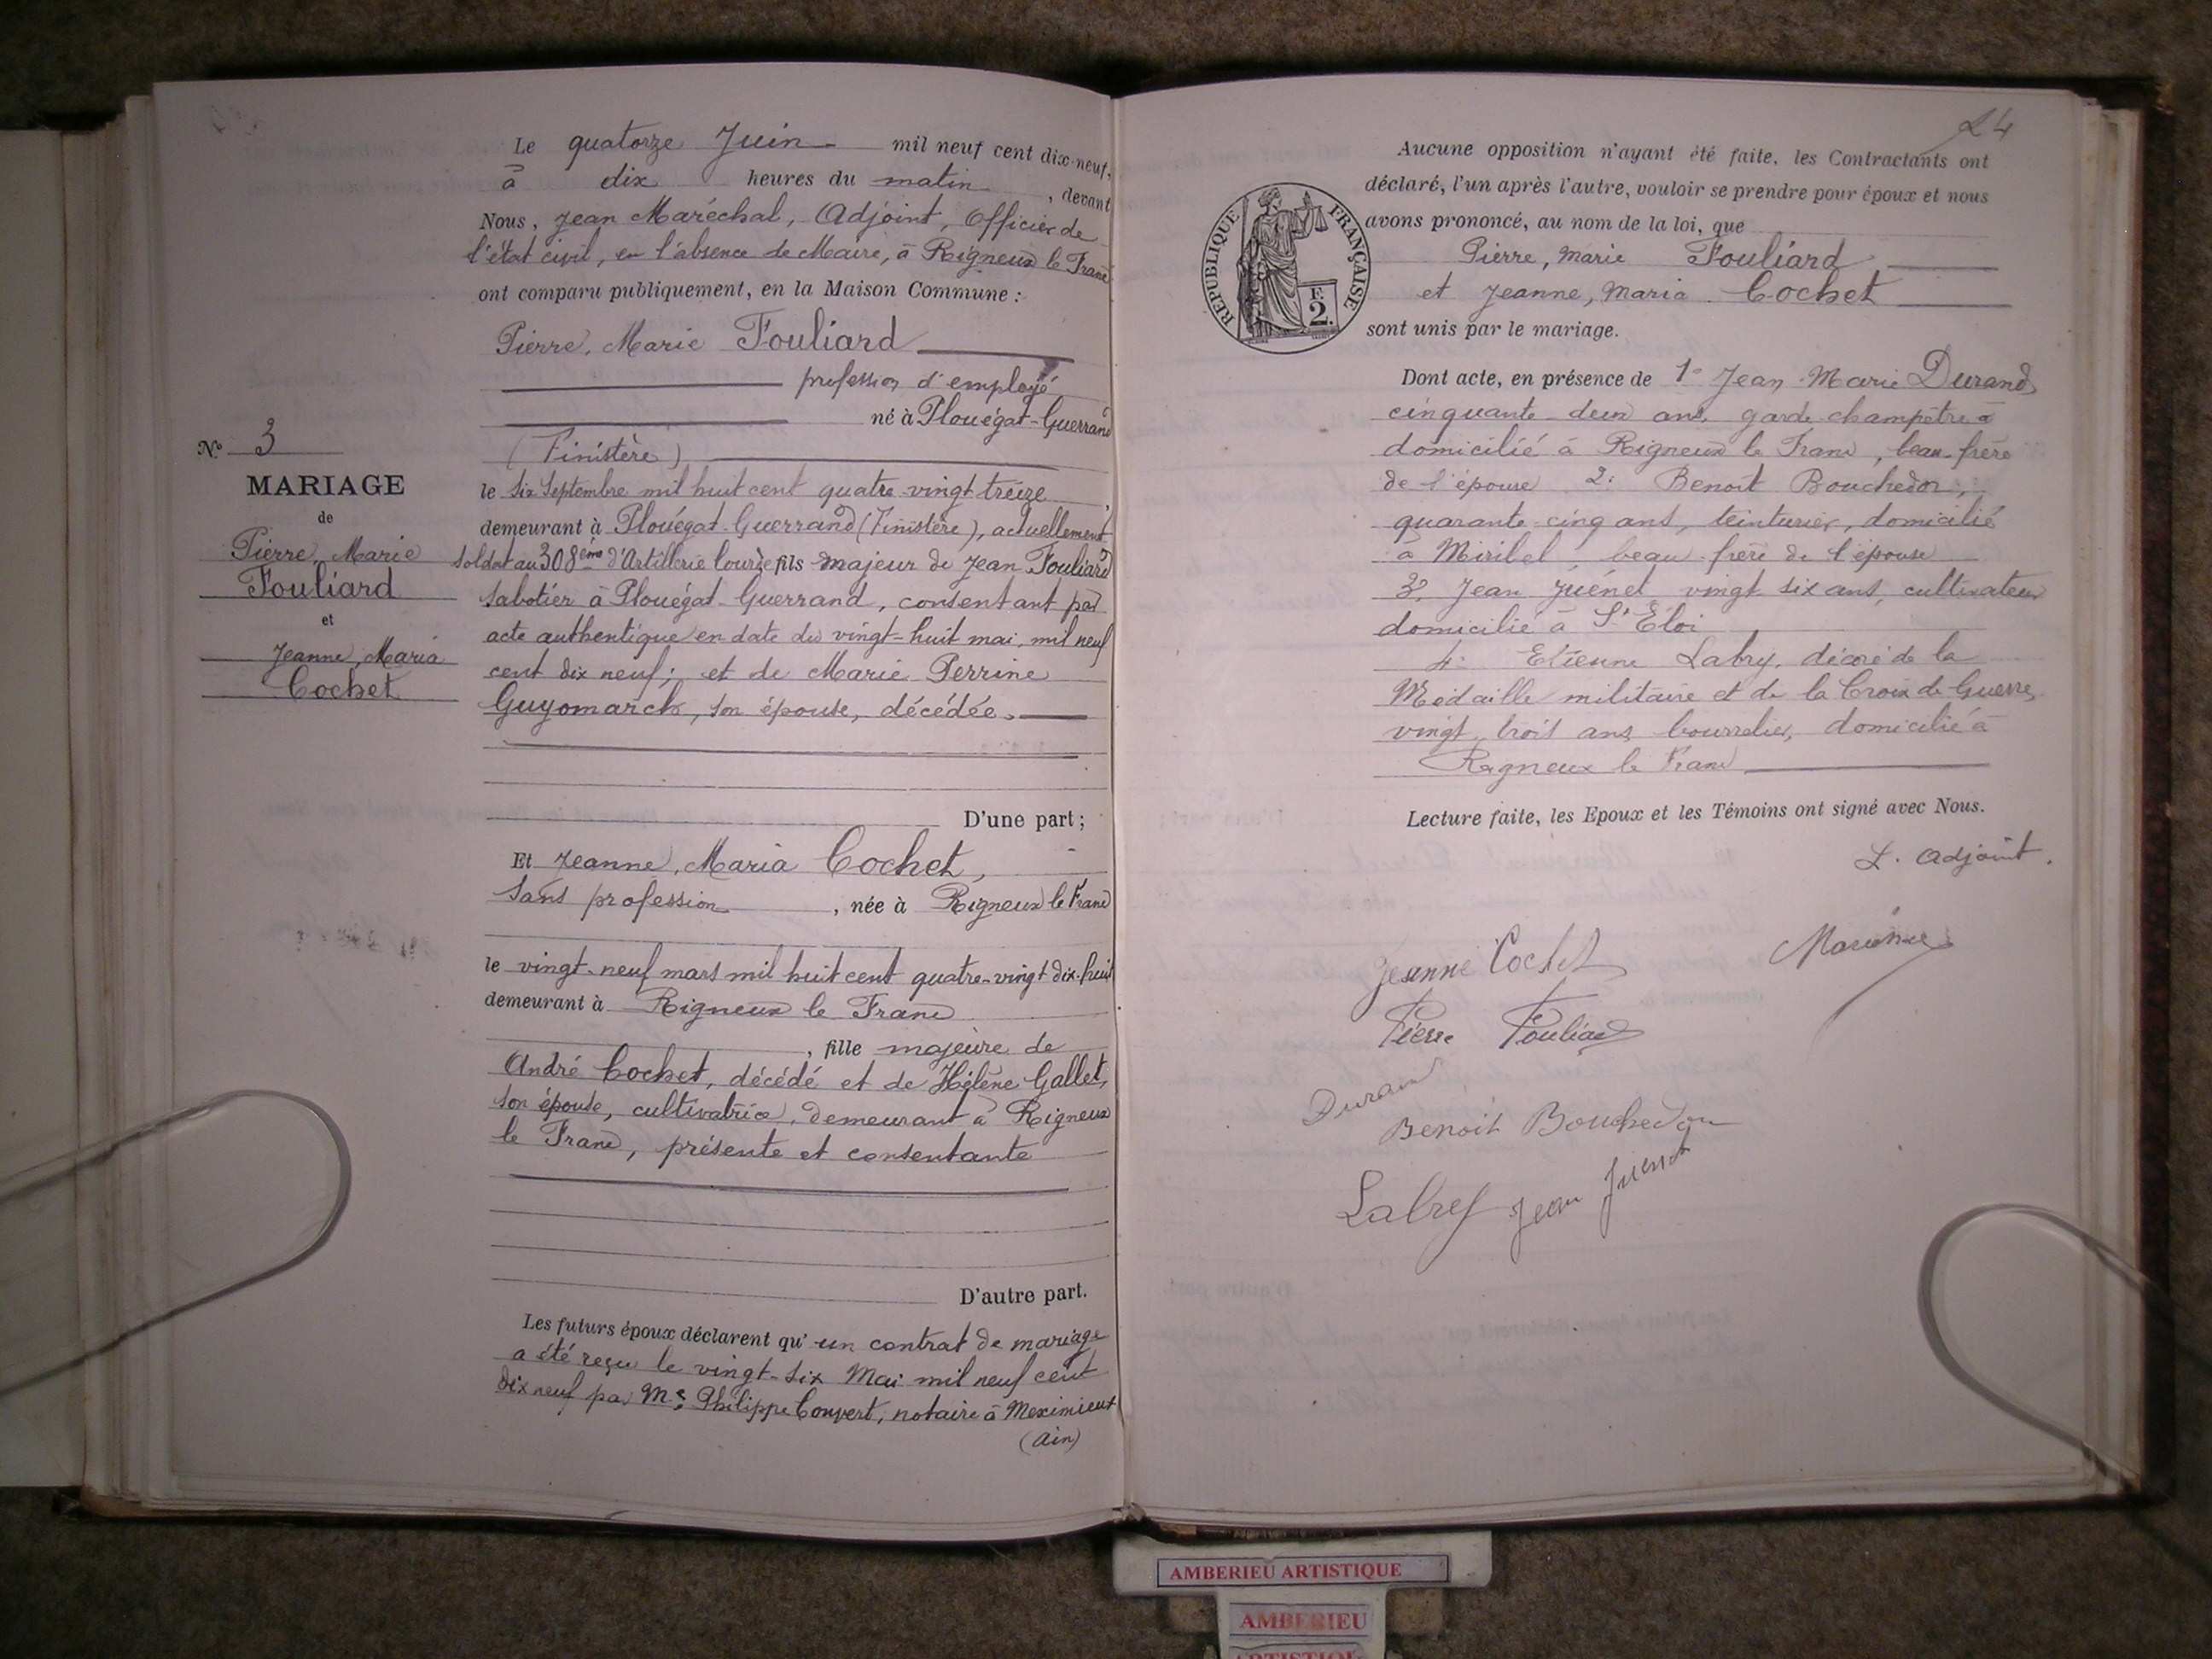 Le quatorze Juin mil neuf cent dix-neuf,
à dix heures du matin, devant
Nous, Jean Maréchal, Adjoint, Officier de
l'état civil, en l'absence de Maire, à Rigneux le Franc
ont comparu publiquement, en la Maison Commune :
Pierre, Marie Fouliard
profession d'employé
né à Plouégat-Guerrand
(Finistère)
le six Septembre mil huit cent quatre-vingt treize,
demeurant à Plouégat-Guerrand (Finistère), actuellement
soldat au 308ème d'Artillerie lourde fils majeur de Jean Fouliard
sabotier à Plouégat-Guerrand, consentant par
acte authentique en date du vingt-huit mai, mil neuf
cent dix neuf; et de Marie Perrine
Guyomarch, son épouse, décédée.
D'une part;
Et Jeanne, Maria Cochet,
sans profession, née à Rigneux le Franc
le vingt-neuf mars mil huit cent quatre-vingt dix-huit
demeurant à Rigneux le Franc
, fille majeure de
André Cochet, décédé et de Hélène Gallet,
son épouse, cultivatrice, demeurant à Rigneux
le Franc, présente et consentante
D'autre part.
Les futurs époux déclarent qu'un contrat de mariage
a été reçu le vingt-six Mai mil neuf cent
dix neuf par Me Philippe Convert, notaire à Meximieux
(Ain)
N° 3
MARIAGE
de
Pierre, Marie
Fouliard
et
Jeanne, Maria
Cochet
24
Aucune opposition n'ayant été faite, les Contractants ont
déclaré, l'un après l'autre, vouloir se prendre pour époux et nous
avons prononcé, au nom de la loi, que
Pierre, Marie Fouliard
et Jeanne, Maria Cochet
sont unis par le mariage.
REPUBLIQUE FRANÇAISE
F.
2.
Dont acte, en présence de 1° Jean-Marie Durand
cinquante-deux ans, garde-champêtre
domicilié à Rigneux le Franc, beau-frère
de l'épouse 2: Benoit Bouchedor,
quarante-cinq ans, teinturier, domicilié
à Miribel, beau-frère de l'épouse
3° Jean Juénet vingt six ans, cultivateur
domicilié à St Eloi
4° Etienne Labry, décoré de la
Médaille militaire et de la Croix de Guerre,
vingt trois ans, bourrelier, domicilié à
Rigneux le Franc
Lecture faite, les Epoux et les Témoins ont signé avec Nous.
L. adjoint.
Jeanne Cochet
Pierre Fouliard
Durand
Benoit Bouchedor
Labry Jean Juenet
AMBERIEU ARTISTIQUE
AMBERIEU
ARTISTIQUE